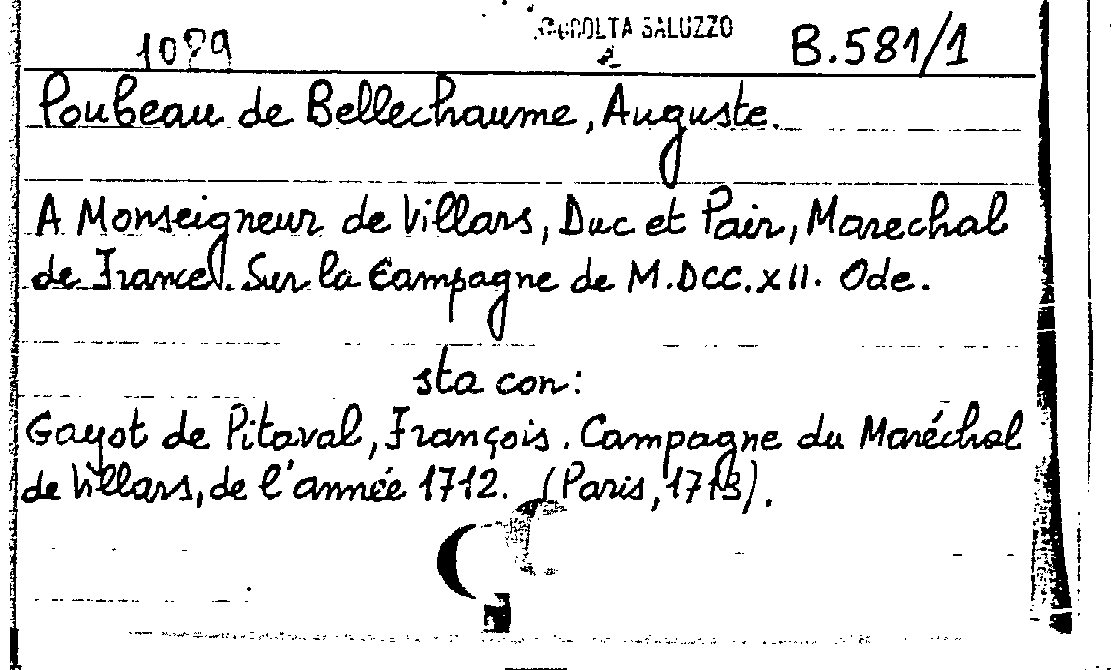 RACCOLTA SALUZZO
1029 B.581/1
Poubeau de Bellechaume, Auguste.
A Monseigneur de Villars, Duc et Pair, Marechal
de France. Sur la Campagne de M.DCC.XII. Ode.
sta con:
Gayot de Pitaval, François. Campagne du Maréchal
de Villars, de l'année 1712. (Paris, 1713).